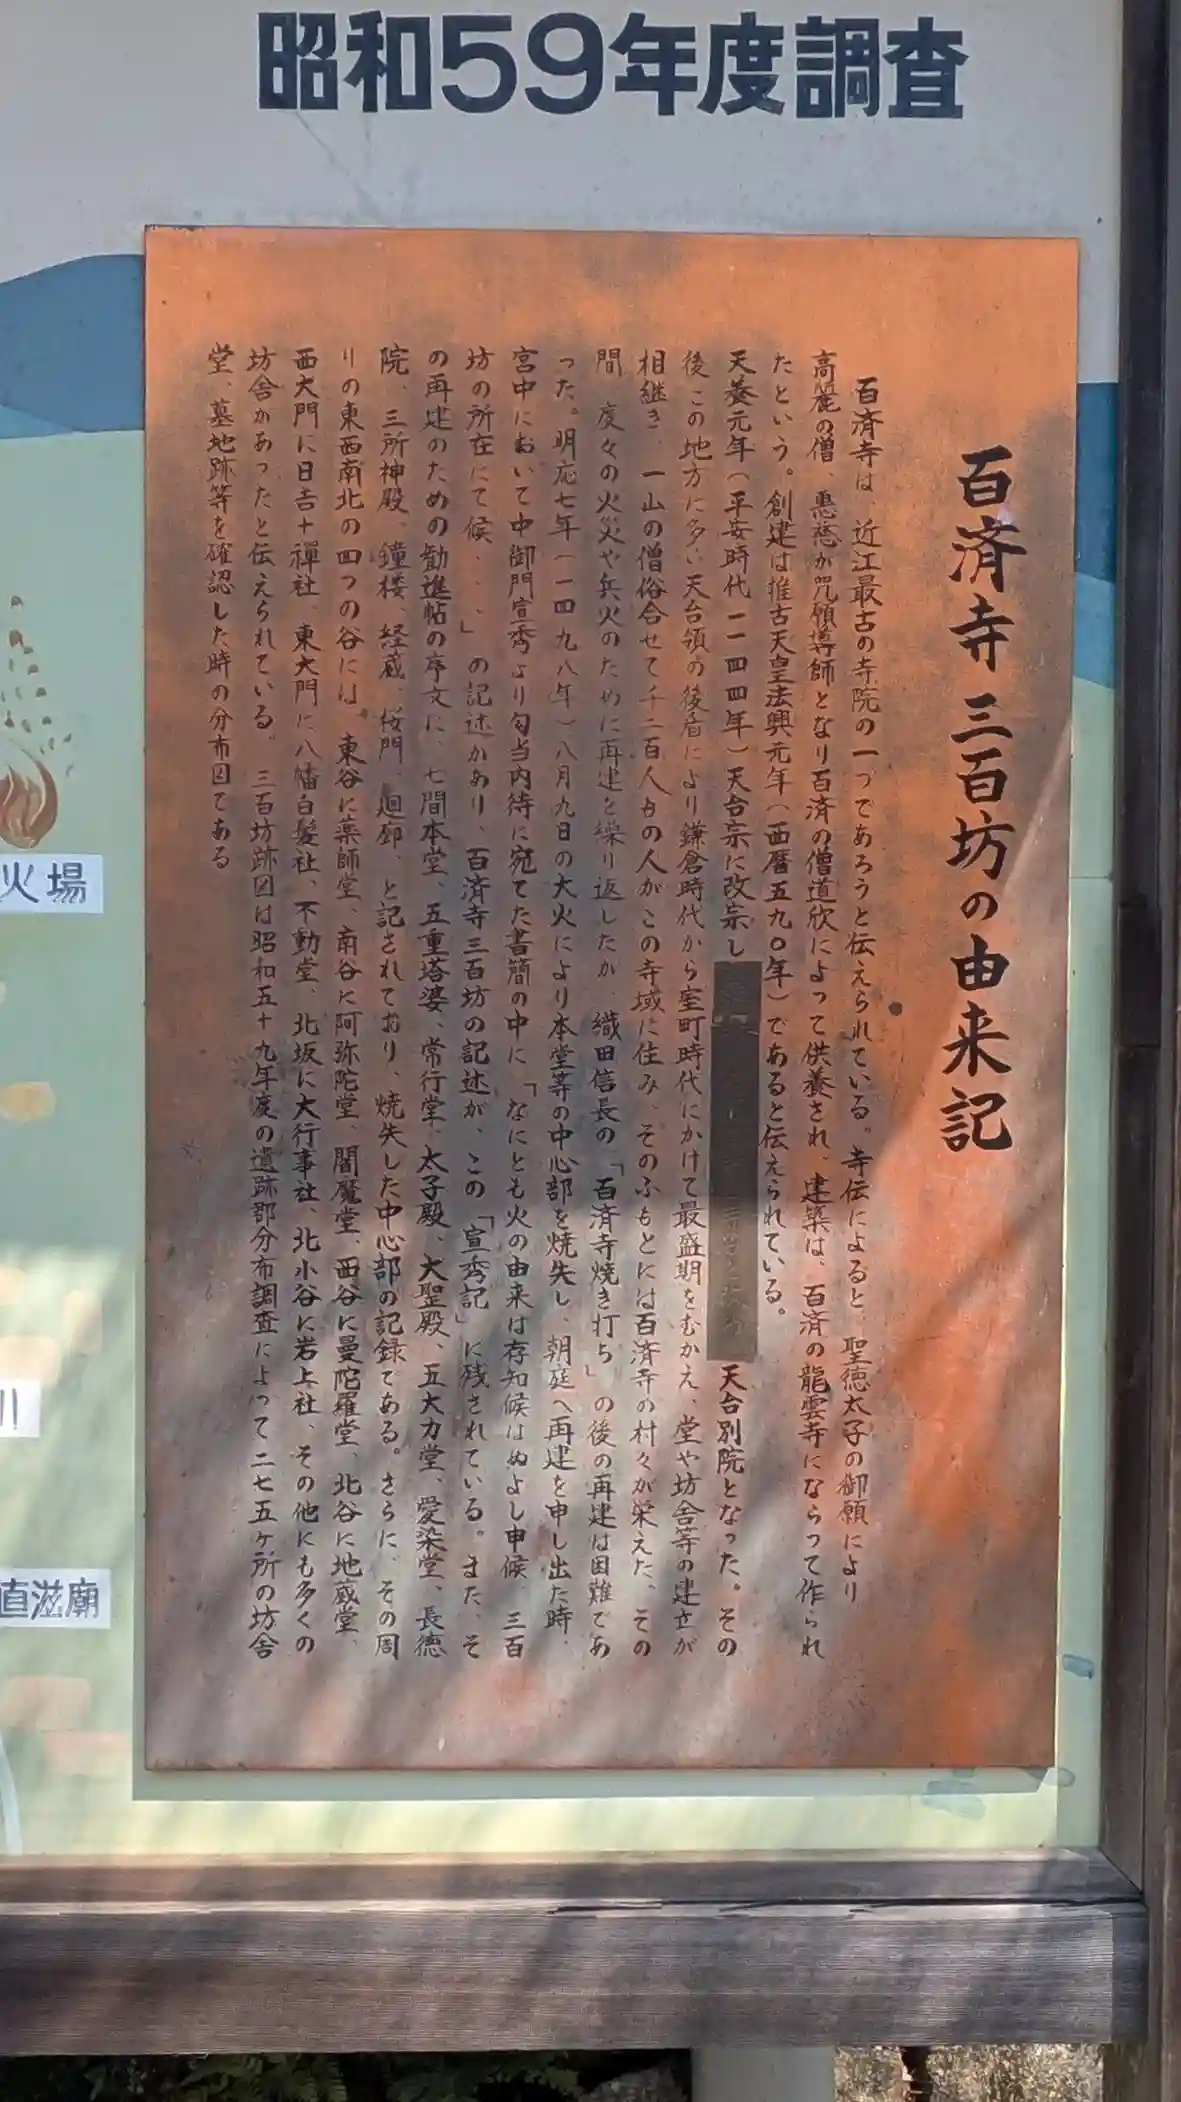 昭和59年度調査
百済寺三百坊の由来記
百済寺は、近江最古の寺院の一つであろうと伝えられている。寺伝によると、聖徳太子の御願により
高麗の僧、惠慈が咒願導師となり百済の僧道欣によって供養され、建築は、百済の龍雲寺にならって作られ
たという。創建は推古天皇法興元年(西暦五九〇年)であると伝えられている。
天養元年(平安時代一一四四年)天台宗に改宗し 天台別院となった。その
後この地方に多い天台領の後盾により鎌倉時代から室町時代にかけて最盛期をむかえ、堂や坊舎等の建立が
相継ぎ、一山の僧俗合せて千二百人もの人がこの寺域に住み、そのふもとには百済寺の村々が栄えた、その
間 度々の火災や兵火のために再建を繰り返したが、織田信長の「百済寺焼き打ち」の後の再建は困難であ
った。明応七年(一四九八年)八月九日の大火により本堂等の中心部を焼失し、朝庭へ再建を申し出た時、
宮中において中御門宣秀より勾当内待に宛てた書簡の中に「なにとも火の由来は存知候はぬよし申候、三百
坊の所在にて候、、、」の記述があり、百済寺三百坊の記述が、この「宣秀記」に残されている。また、そ
の再建のための勧進帖の序文に、七間本堂、五重塔婆、常行堂、太子殿、大聖殿、五大力堂、愛染堂、長徳
院、三所神殿、鐘楼、経蔵、桜門、廻廊、と記されており、焼失した中心部の記録である。さらに、その周
りの東西南北の四つの谷には、東谷に薬師堂、南谷に阿弥陀堂、閻魔堂、西谷に曼陀羅堂、北谷に地蔵堂、
西大門に日吉十禪社、東大門に八幡白髪社、不動堂、北坂に大行事社、北小谷に岩上社、その他にも多くの
坊舎があったと伝えられている。 三百坊跡図は昭和五十九年度の遺跡郡分布調査によって二七五ヶ所の坊舎
堂、墓地跡等を確認した時の分布図である
火場
川
直滋廟